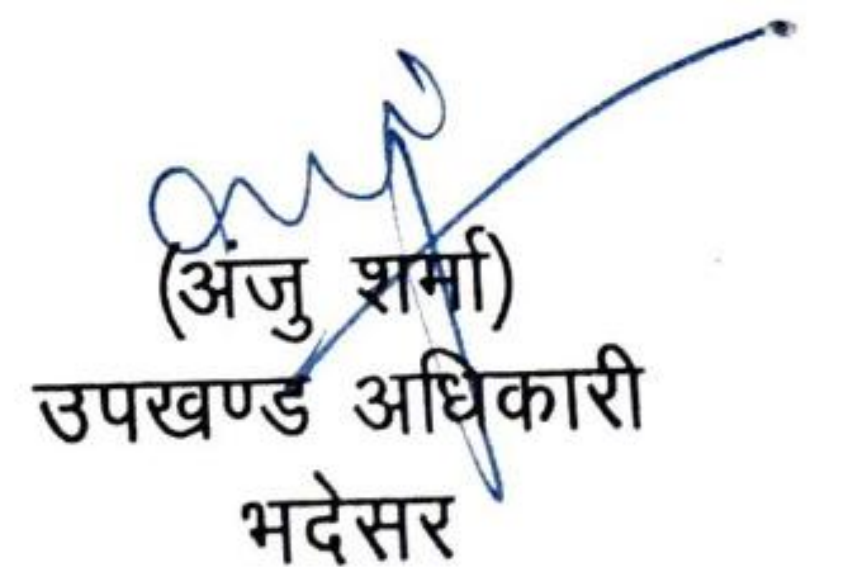 (अंजु शर्मा)
उपखण्ड अधिकारी
भदेसर